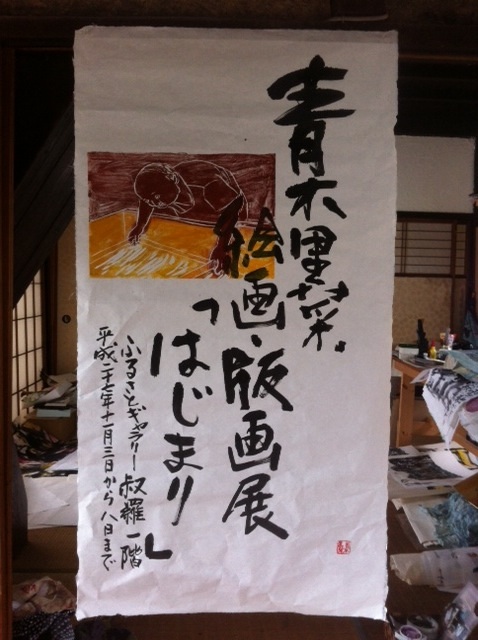 青木里菜
絵画・版画展
「はじまり」
ふるさとギャラリー叔羅 一階
平成二十七年十一月三日から八日まで